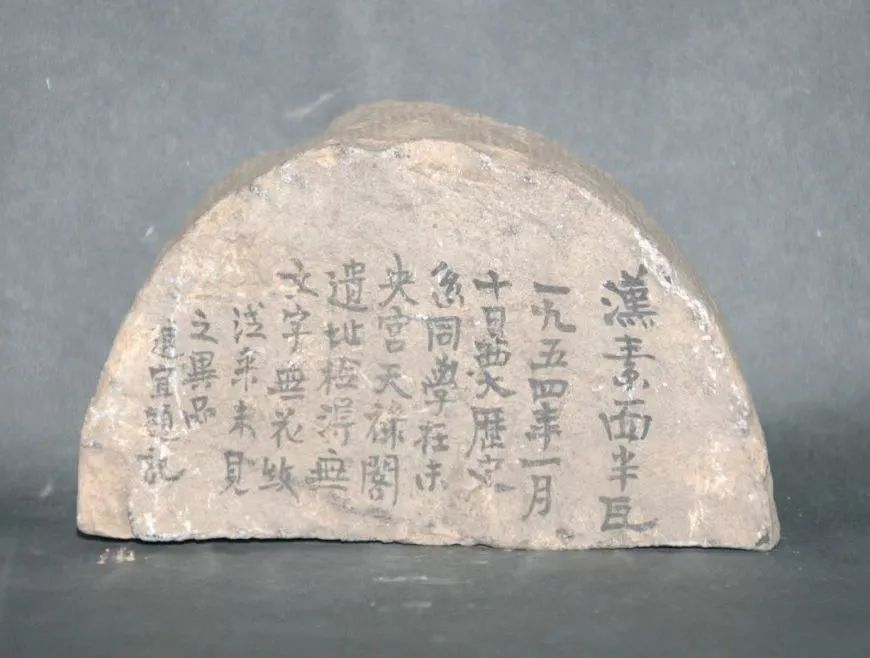 漢素面半瓦
一九五四年一月
十日西大歷史
系同學在未
央宮天祿閣
遺址檢得無
文字無花紋
從来未見
之異品
進宜題記